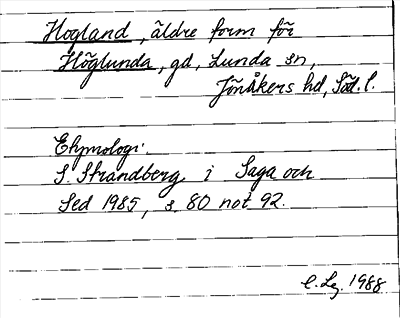 Hogland, äldre form för
Höglunda, gd, Lunda sn,
Jönåkers hd, Söd. l.
Etymologi.
S. Strandberg i Saga och
Sed 1985, s. 80 not 92.
C. Lg. 1988